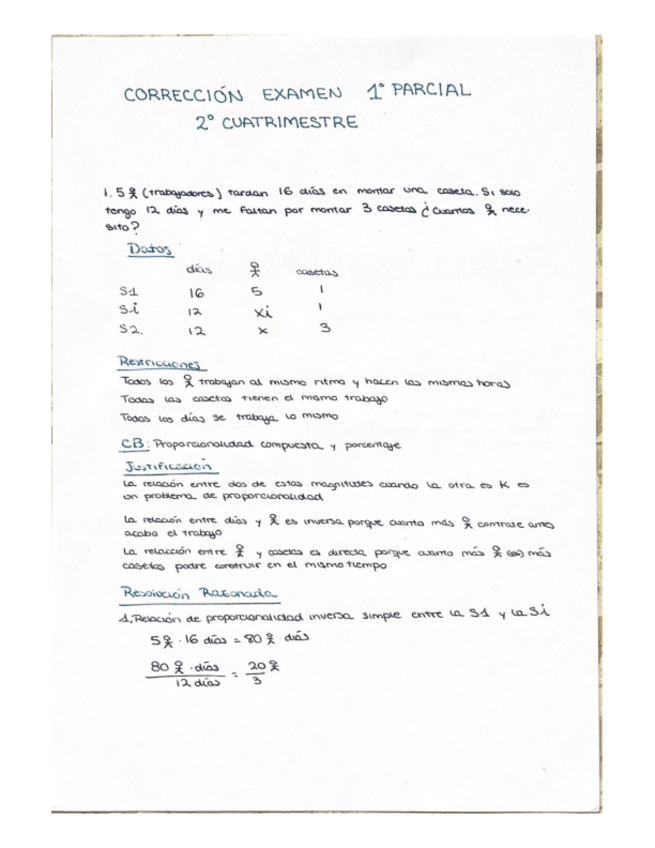 CORRECCIÓN EXAMEN 1º PARCIAL
2º CUATRIMESTRE
1. 5 (trabajadores) tardan 16 días en montar una caseta. Si solo
tengo 12 días y me faltan por montar 3 casetas ¿cuantos nece-
sito?
Datos
días casetas
S1 16 5 1
Si 12 xi 1
S2. 12 x 3
Restricciones
Todos los trabajan al mismo ritmo y hacen las mismas horas
Todas las casetas tienen el mismo trabajo
Todos los días se trabaja lo mismo
CB: Proporcionalidad compuesta y porcentaje
Justificación
La relación entre dos de estas magnitudes cuando la otra es K es
un problema de proporcionalidad
La relación entre días y es inversa porque cuanto más contrate antes
acabo el trabajo
La relacción entre y casetas es directa porque cuanto más más
casetas podre construir en el mismo tiempo
Resolución Razonada
1, Relación de proporcionalidad inversa simple entre la S1 y la Si
5 · 16 días = 80 · días
80 · días / 12 días = 20 / 3